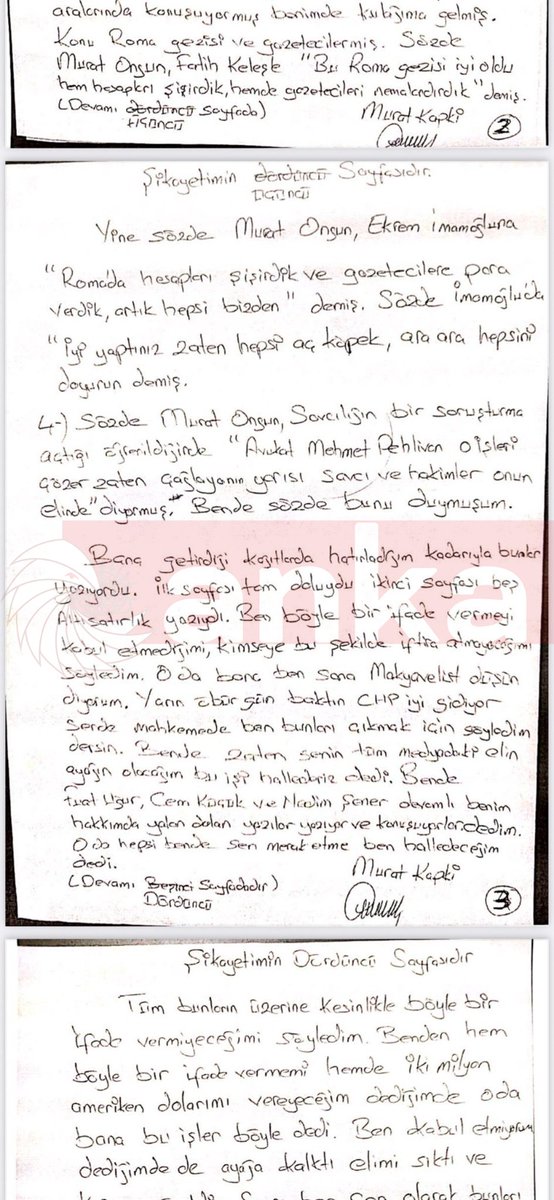 aralarında konuşuyormuş benimde kulağıma gelmiş.
Konu Roma gezisi ve gazetecilermiş. Sözde
Murat Ongun, Fatih Keleşle "Bu Roma gezisi iyi oldu
hem hesapları şişirdik, hemde gazetecileri nemalandırdık" demiş.
(Devamı dördüncü sayfada) Murat Kapki
üçüncü
2
Şikayetimin dördüncü Sayfasıdır.
üçüncü
Yine sözde Murat Ongun, Ekrem İmamoğluna
"Roma'da hesapları şişirdik ve gazetecilere para
verdik, artık hepsi bizden" demiş. Sözde İmamoğlu'da
"iyi yaptınız zaten hepsi aç köpek, ara ara hepsini
doyurun demiş.
4-) Sözde Murat Ongun, Savcılığın bir soruşturma
açtığı öğrenildiğinde "Avukat Mehmet Pehlivan o işleri
çözer zaten Çağlayanın yarısı savcı ve hakimler onun
elinde" diyormuş. Bende sözde bunu duymuşum.
Bana getirdiği kağıtlarda hatırladığım kadarıyla bunlar
yazıyordu. İlk sayfası tam doluydu ikinci sayfası beş
Altı satırlık yazıydı. Ben böyle bir ifade vermeyi
kabul etmediğimi, kimseye bu şekilde iftira atmayacağımı
söyledim. O da bana ben sana Makyavelist düşün
diyorum. Yarın öbür gün baktın CHP iyi gidiyor
sende mahkemede ben bunları çıkmak için söyledim
dersin. Bende zaten senin tüm medyadaki elin
ayağın olacağım bu işi hallederiz dedi. Bende
Fuat Uğur, Cem Küçük ve Nedim Şener devamlı benim
hakkımda yalan dolan yazılar yazıyor ve konuşuyorlar dedim.
O da hepsi bende sen merak etme ben halledeceğim
dedi. Murat Kapki
(Devamı Beşinci Sayfadadır)
Dördüncü
3
anka
Şikayetimin Dördüncü Sayfasıdır
Tüm bunların üzerine kesinlikle böyle bir
ifade vermiyeceğimi söyledim. Benden hem
böyle bir ifade vermemi hemde iki milyon
amerikan dolarımı vereyeceğim dediğimde oda
bana bu işler böyle dedi. Ben kabul etmiyorum
dediğimde de ayağa kalktı elimi sıktı ve